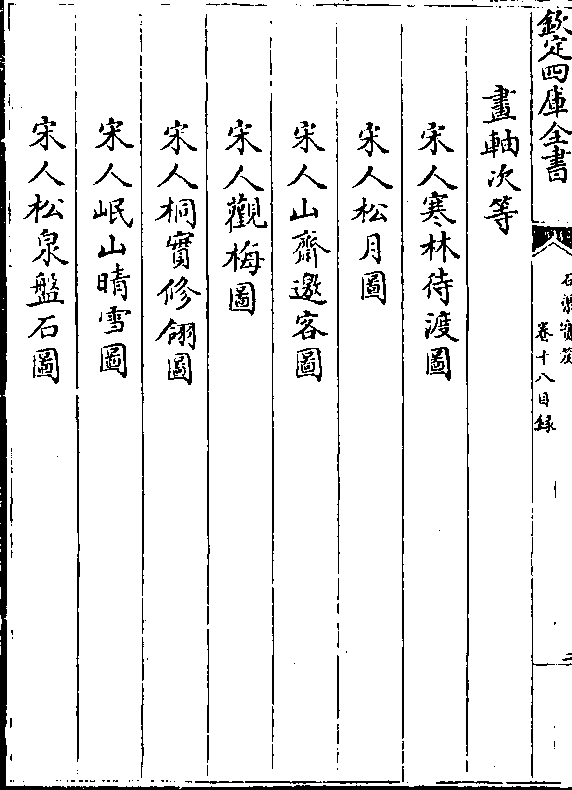 欽定四庫全書
石渠寶笈
卷十八目録
二
畫軸次等
宋人寒林待渡圖
宋人松月圖
宋人山齋邀客圖
宋人觀梅圖
宋人桐實修翎圖
宋人岷山晴雪圖
宋人松泉盤石圖